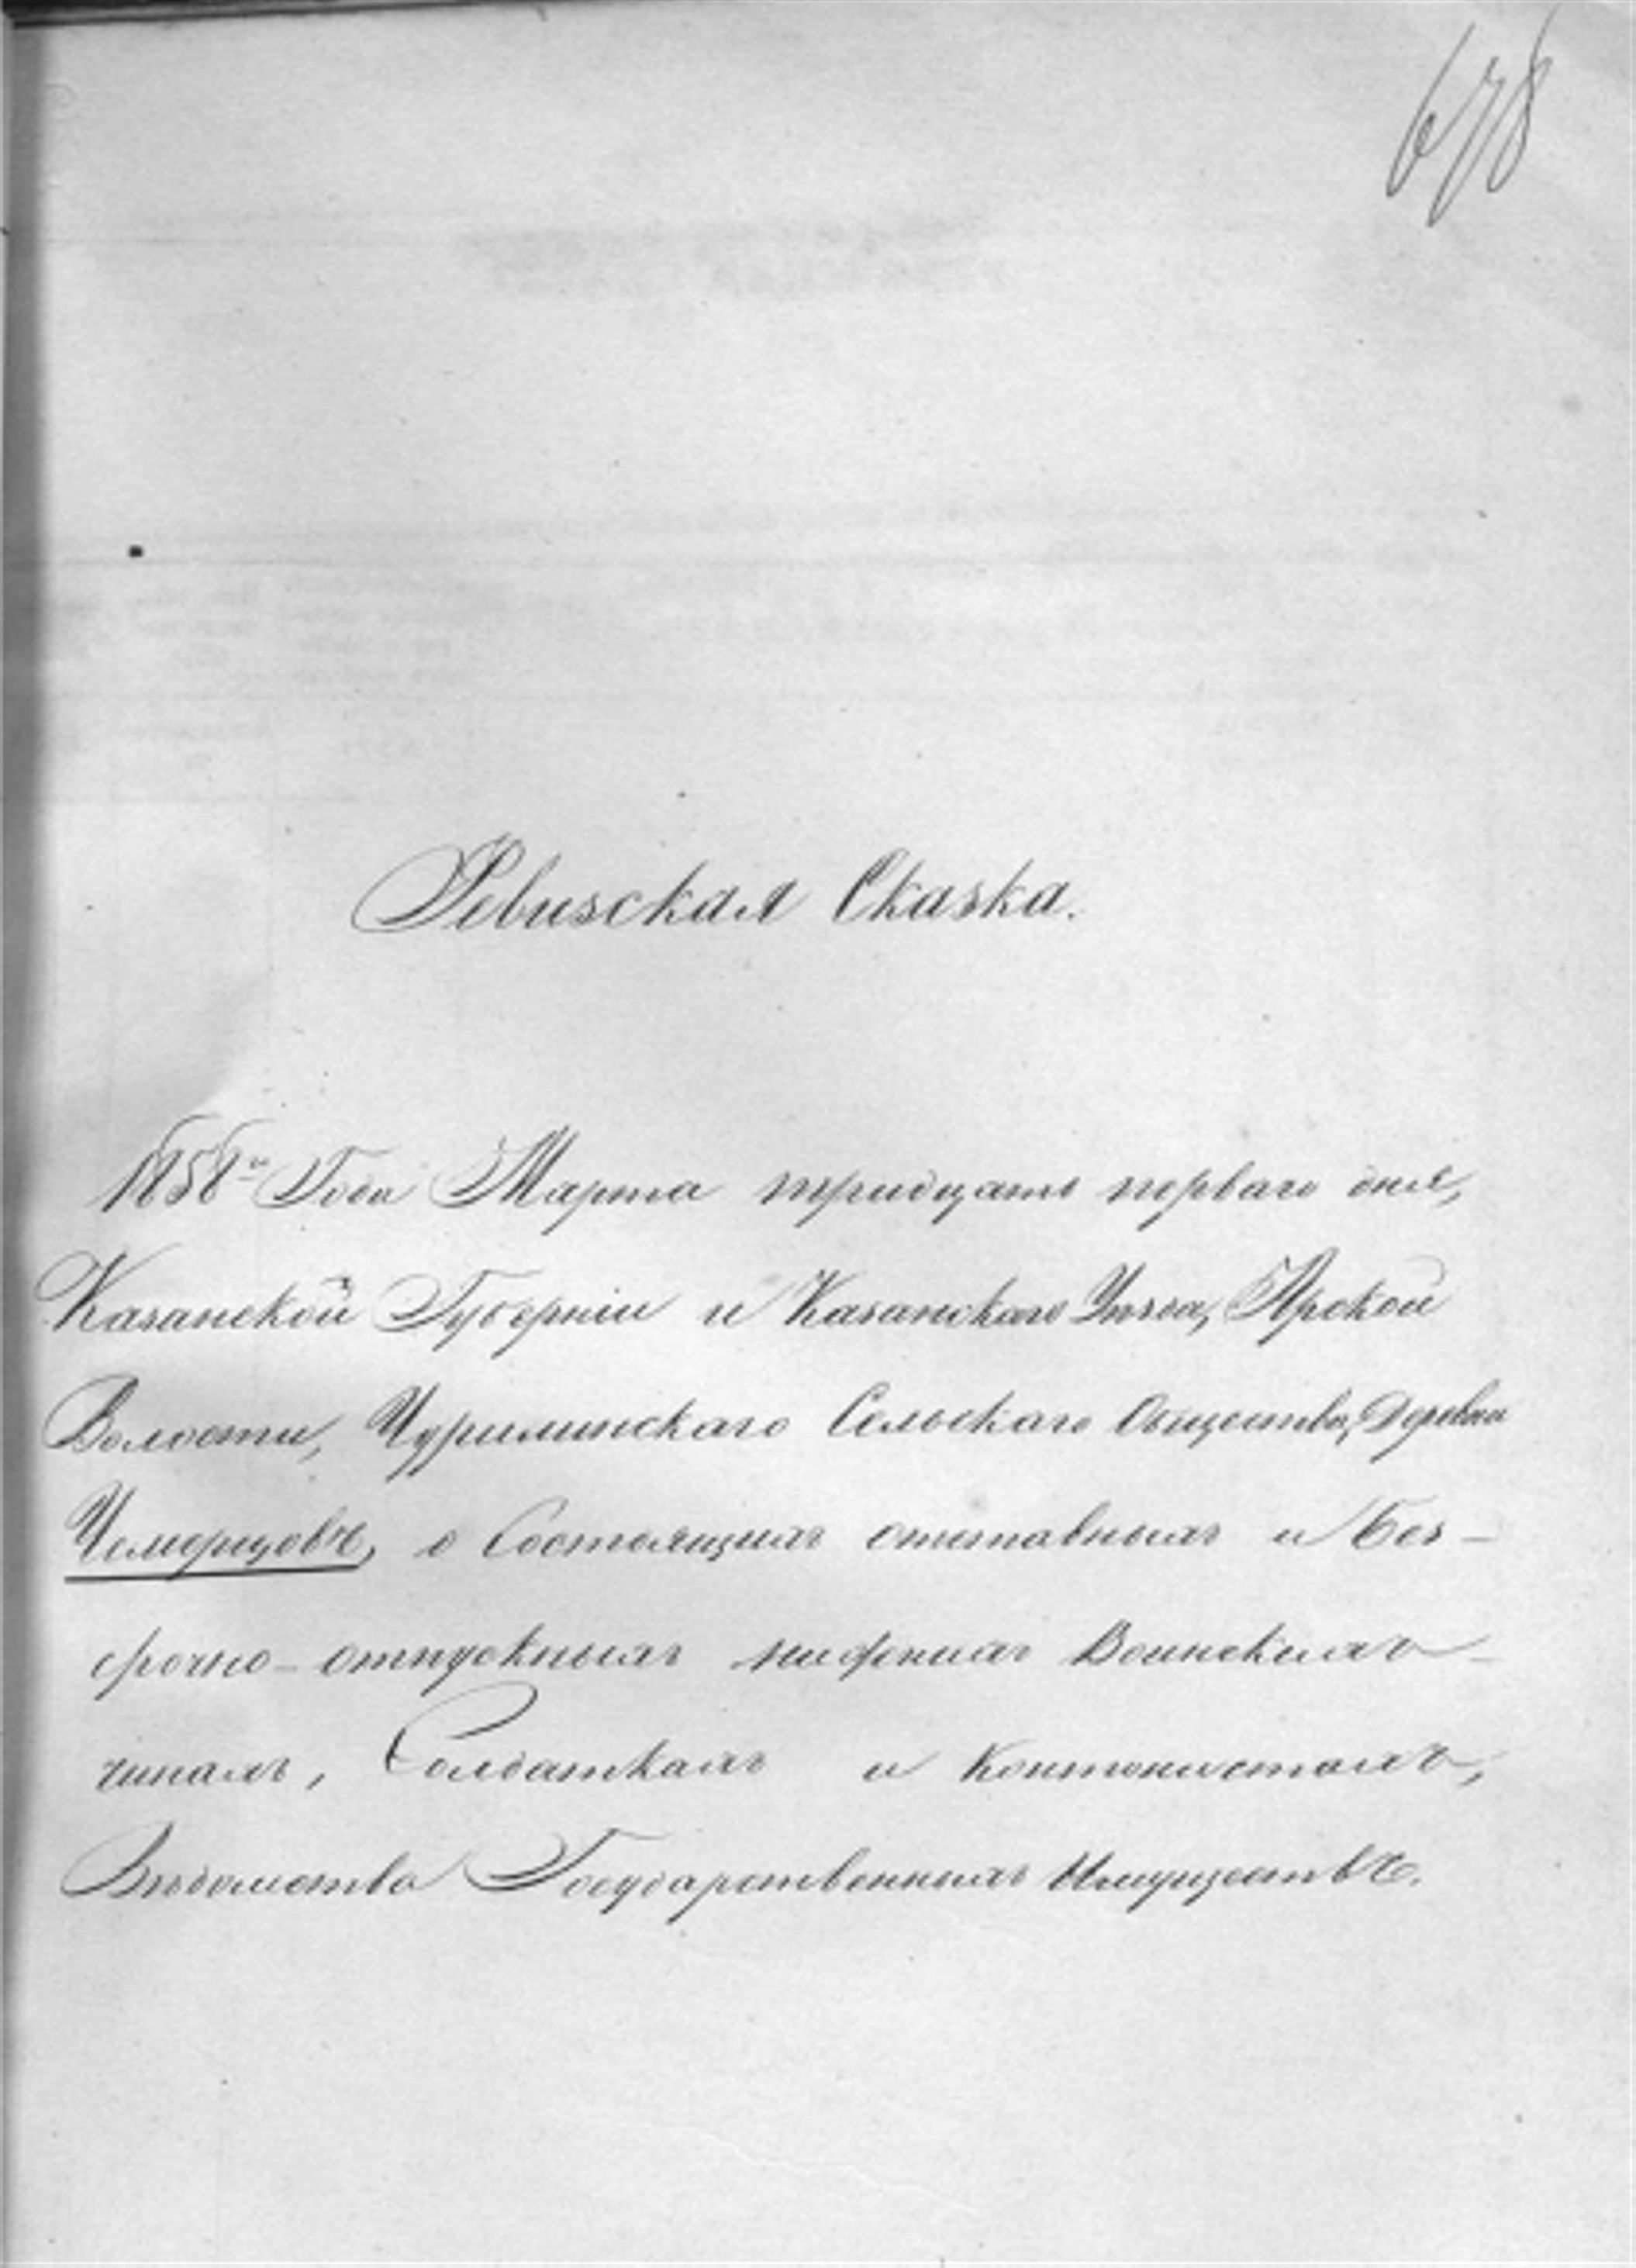 678
Ревизская Сказка.
1858го Года Марта тридцать перваго дня,
Казанской Губерніи и Казанскаго Уѣзда, Арской
Волости, Чурилинскаго Сельскаго Общества, Деревни
Чемерцовъ, о Состоящихъ отставныхъ и Без-
срочно-отпускныхъ нижнихъ Воинскихъ
чинахъ, Солдаткахъ и Кантонистахъ,
Вѣдомства Государственныхъ Имуществъ.